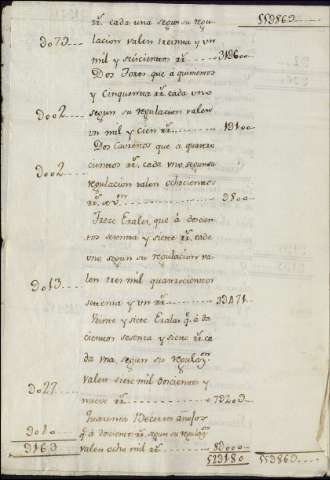 rr.^s cada una segun su regu- 55986э
Э079 lacion valen treinta y un
mil y seiscientos rr.^s 31Э600
Dos Toros que a quinientos
y Cinquenta rr.^s cada uno
Э002 segun su regulacion valen
un mil y cien rr.^s 1Э100
Dos Cutrenos que a quatro
cientos rr.^s cada uno segun su
Э002 regulacion valen ochocientos
rr.^s 
Э800
Trece Erales, que à docien-
tos setenta y siete rr.^s cada
uno segun su regulacion va-
len tres mil quatrocientos
Э013 setenta y un rr.^s 3Э471
Veinte y siete Erales q.^e à do
cientos sesenta y siete rr.^s ca
da uno, segun su regulaz.^n
Э027 valen siete mil docientos y
nueve rr.^s 7Э209
Quarenta Becerros añojos
Э040 q.^e à docientos rr.^s segun su regulaz.^n
Э163 valen ocho mil rr.^s 8Э000